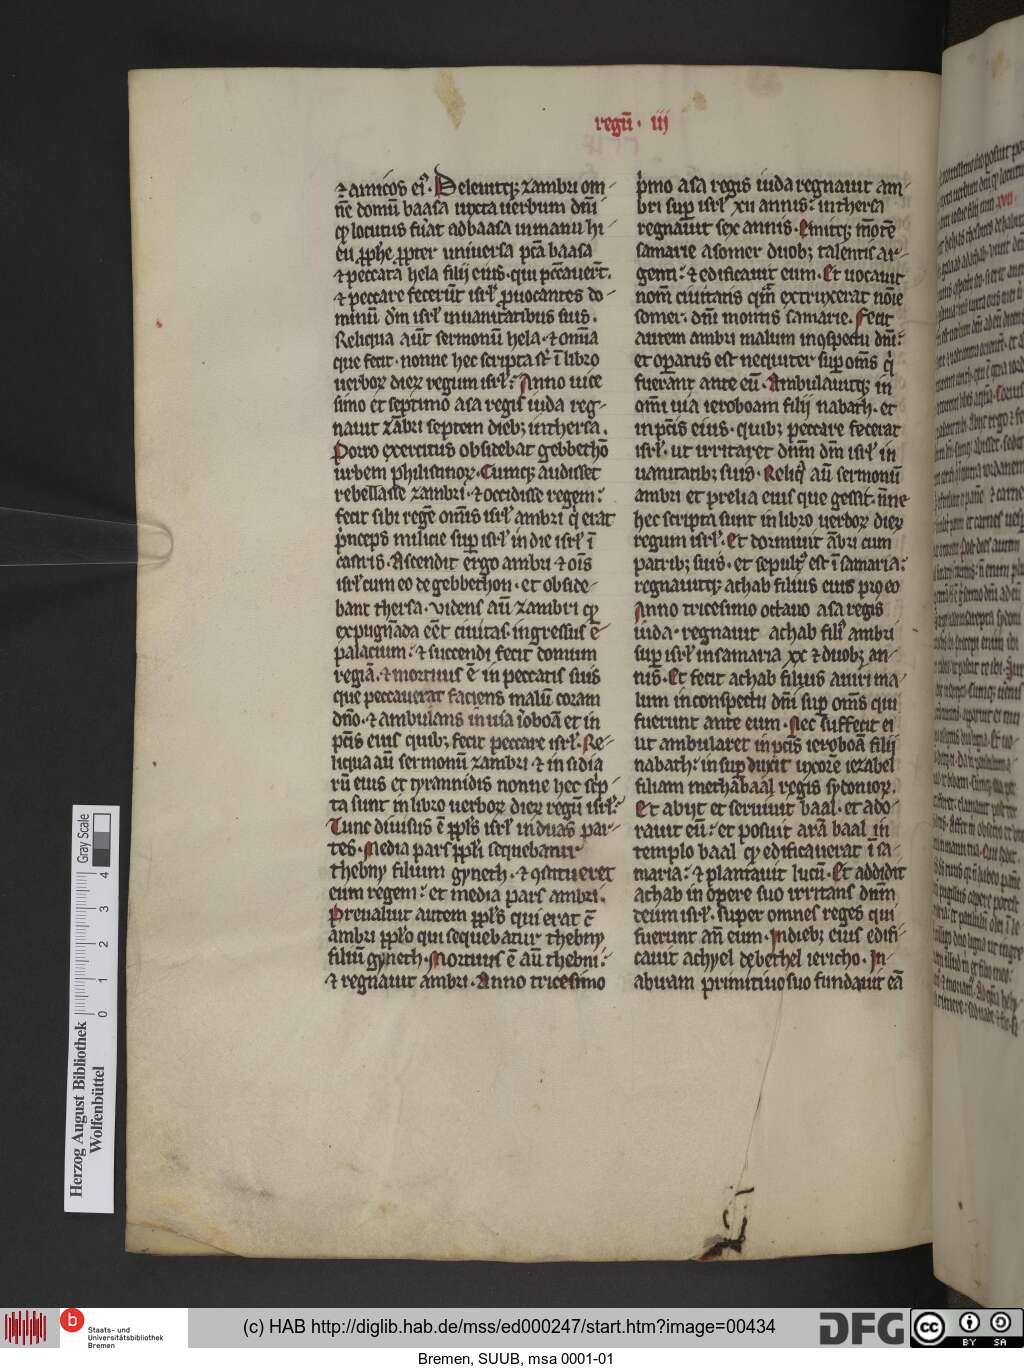 regū · iij
⁊ amicos eiꝰ. Deleuitqꝫ zambri om-
ne domū baasa iuxta uerbum dn̄i
qͥ locutus fuat ad baasa in manu hi
eu ꝓph̄e ꝓpter uniuersa pc̄a baasa
⁊ peccata hela filij eius · qui peccauert̄.
⁊ peccare fecerūt isrl̓ ꝓuocantes do-
minū dm̄ isrl̓ in uanitatibus suis.
Reliqua aūt sermonū hela · ⁊ om̄ia
que fecit · nonne hec scripta st̄ ī libro
uerboꝝ dieꝝ regum isrl̓: Anno uice
simo et septimo asa regis iuda reg-
nauit zābri septem diebꝫ in thersa.
Porro exercitus obsidebat gebbethō
urbem philistinoꝝ. Cumqꝫ audisset
rebellasse zambri · ⁊ occidisse regem:
fecit sibi regē omīs isrl̓ ambri qͥ erat
pͥnceps milicie suꝑ isrl̓ in die isrl̓ ī
castris. Ascendit ergo ambri ⁊ oīs
isrl̓ cum eo de gebbethon · et obside-
bant thersa · Videns aū zambri qͥ
expugnāda eēt ciuitas · ingressus ē
palacium: ⁊ succendi fecit domum
regiā. ⁊ mortuus ē in peccatis suis
que peccauerat faciens malū coram
dn̄o · ⁊ ambulans in uia īoboā et in
pc̄īs eius quibꝫ fecit peccare isrl̓. Re-
liqua aū sermonū zambri · ⁊ insidia
rū eius et tyrannidis nonne hec sc̄p-
ta sunt in libro uerboꝝ dieꝝ regū isrl̓:
Tunc diuisus ē ppl̓s isrl̓ in duas par-
tes. Media pars ppl̓i sequebatur
thebny filium gyneth · ⁊ ꝯstitueret
eum regem: et media pars ambri.
Preualuit autem ppl̓s qui erat cē
ambri ppl̓o qui sequebatur thebny
filiū gyneth. Mortuus ē aū thebni:
⁊ regnauit ambri. Anno tricesimo
pͥmo asa regis iuda regnauit am-
bri suꝑ isrl̓ xii annis: in thersa
regnauit sex annis. Emitqꝫ mōtē
samarie a somer duobꝫ talentis ar-
genti: ⁊ edificauit eum. Et uocauit
nom̄ ciuitatis qm̄ extruxerat nōie
somer · dn̄i montis samarie. Fecit
autem ambri malum in ꝯspectu dn̄i:
et oꝑatus est nequiter suꝑ om̄s qͥ
fuerant ante eū. Ambulauitqꝫ in
om̄i uia ieroboam filij nabath · et
in pc̄īs eius · quibꝫ peccare fecerat
isrl̓. ut irritaret dn̄m dm̄ isrl̓ in
uanitatibꝫ suis. Reliqͣ aū sermonū
ambri et prelia eius que gessit: n̄ne
hec scripta sunt in libro uerboꝝ dieꝝ
regum isrl̓. Et dormiuit ābri cum
patribꝫ suis · et sepultꝰ est ī samaria:
regnauitqꝫ achab filius eius pro eo
Anno tricesimo octauo asa regis
iuda · regnauit achab filiꝰ ambri
suꝑ isrl̓ in samaria xx ⁊ duobꝫ an-
nis. Et fecit achab filius amri ma-
lum in conspectu dn̄i suꝑ om̄s qui
fuerunt ante eum. Nec suffecit ei
ut ambularet in pc̄īs ieroboā filij
nabath: insuꝑ duxit uxore iezabel
filiam methābaal regis sydonioꝝ.
Et abijt et seruiuit baal · et ado-
rauit eū: et posuit arā baal in
templo baal qͥ edificauerat ī sa-
maria: ⁊ plantauit lucū. Et addidit
achab in opere suo irritans dn̄m
deum isrl̓. super omnes reges qui
fuerunt an̄ eum. In diebꝫ eius edifi-
cauit achyel de bethel iericho. In
abiram primitiuo suo fundauit eā
Herzog August Bibliothek
Wolfenbüttel
Gray Scale
0 1 2 3 4
b Staats- und
Universitätsbibliothek
Bremen
(c) HAB http://diglib.hab.de/mss/ed000247/start.htm?image=00434
DFG
cc BY SA
Bremen, SUUB, msa 0001-01